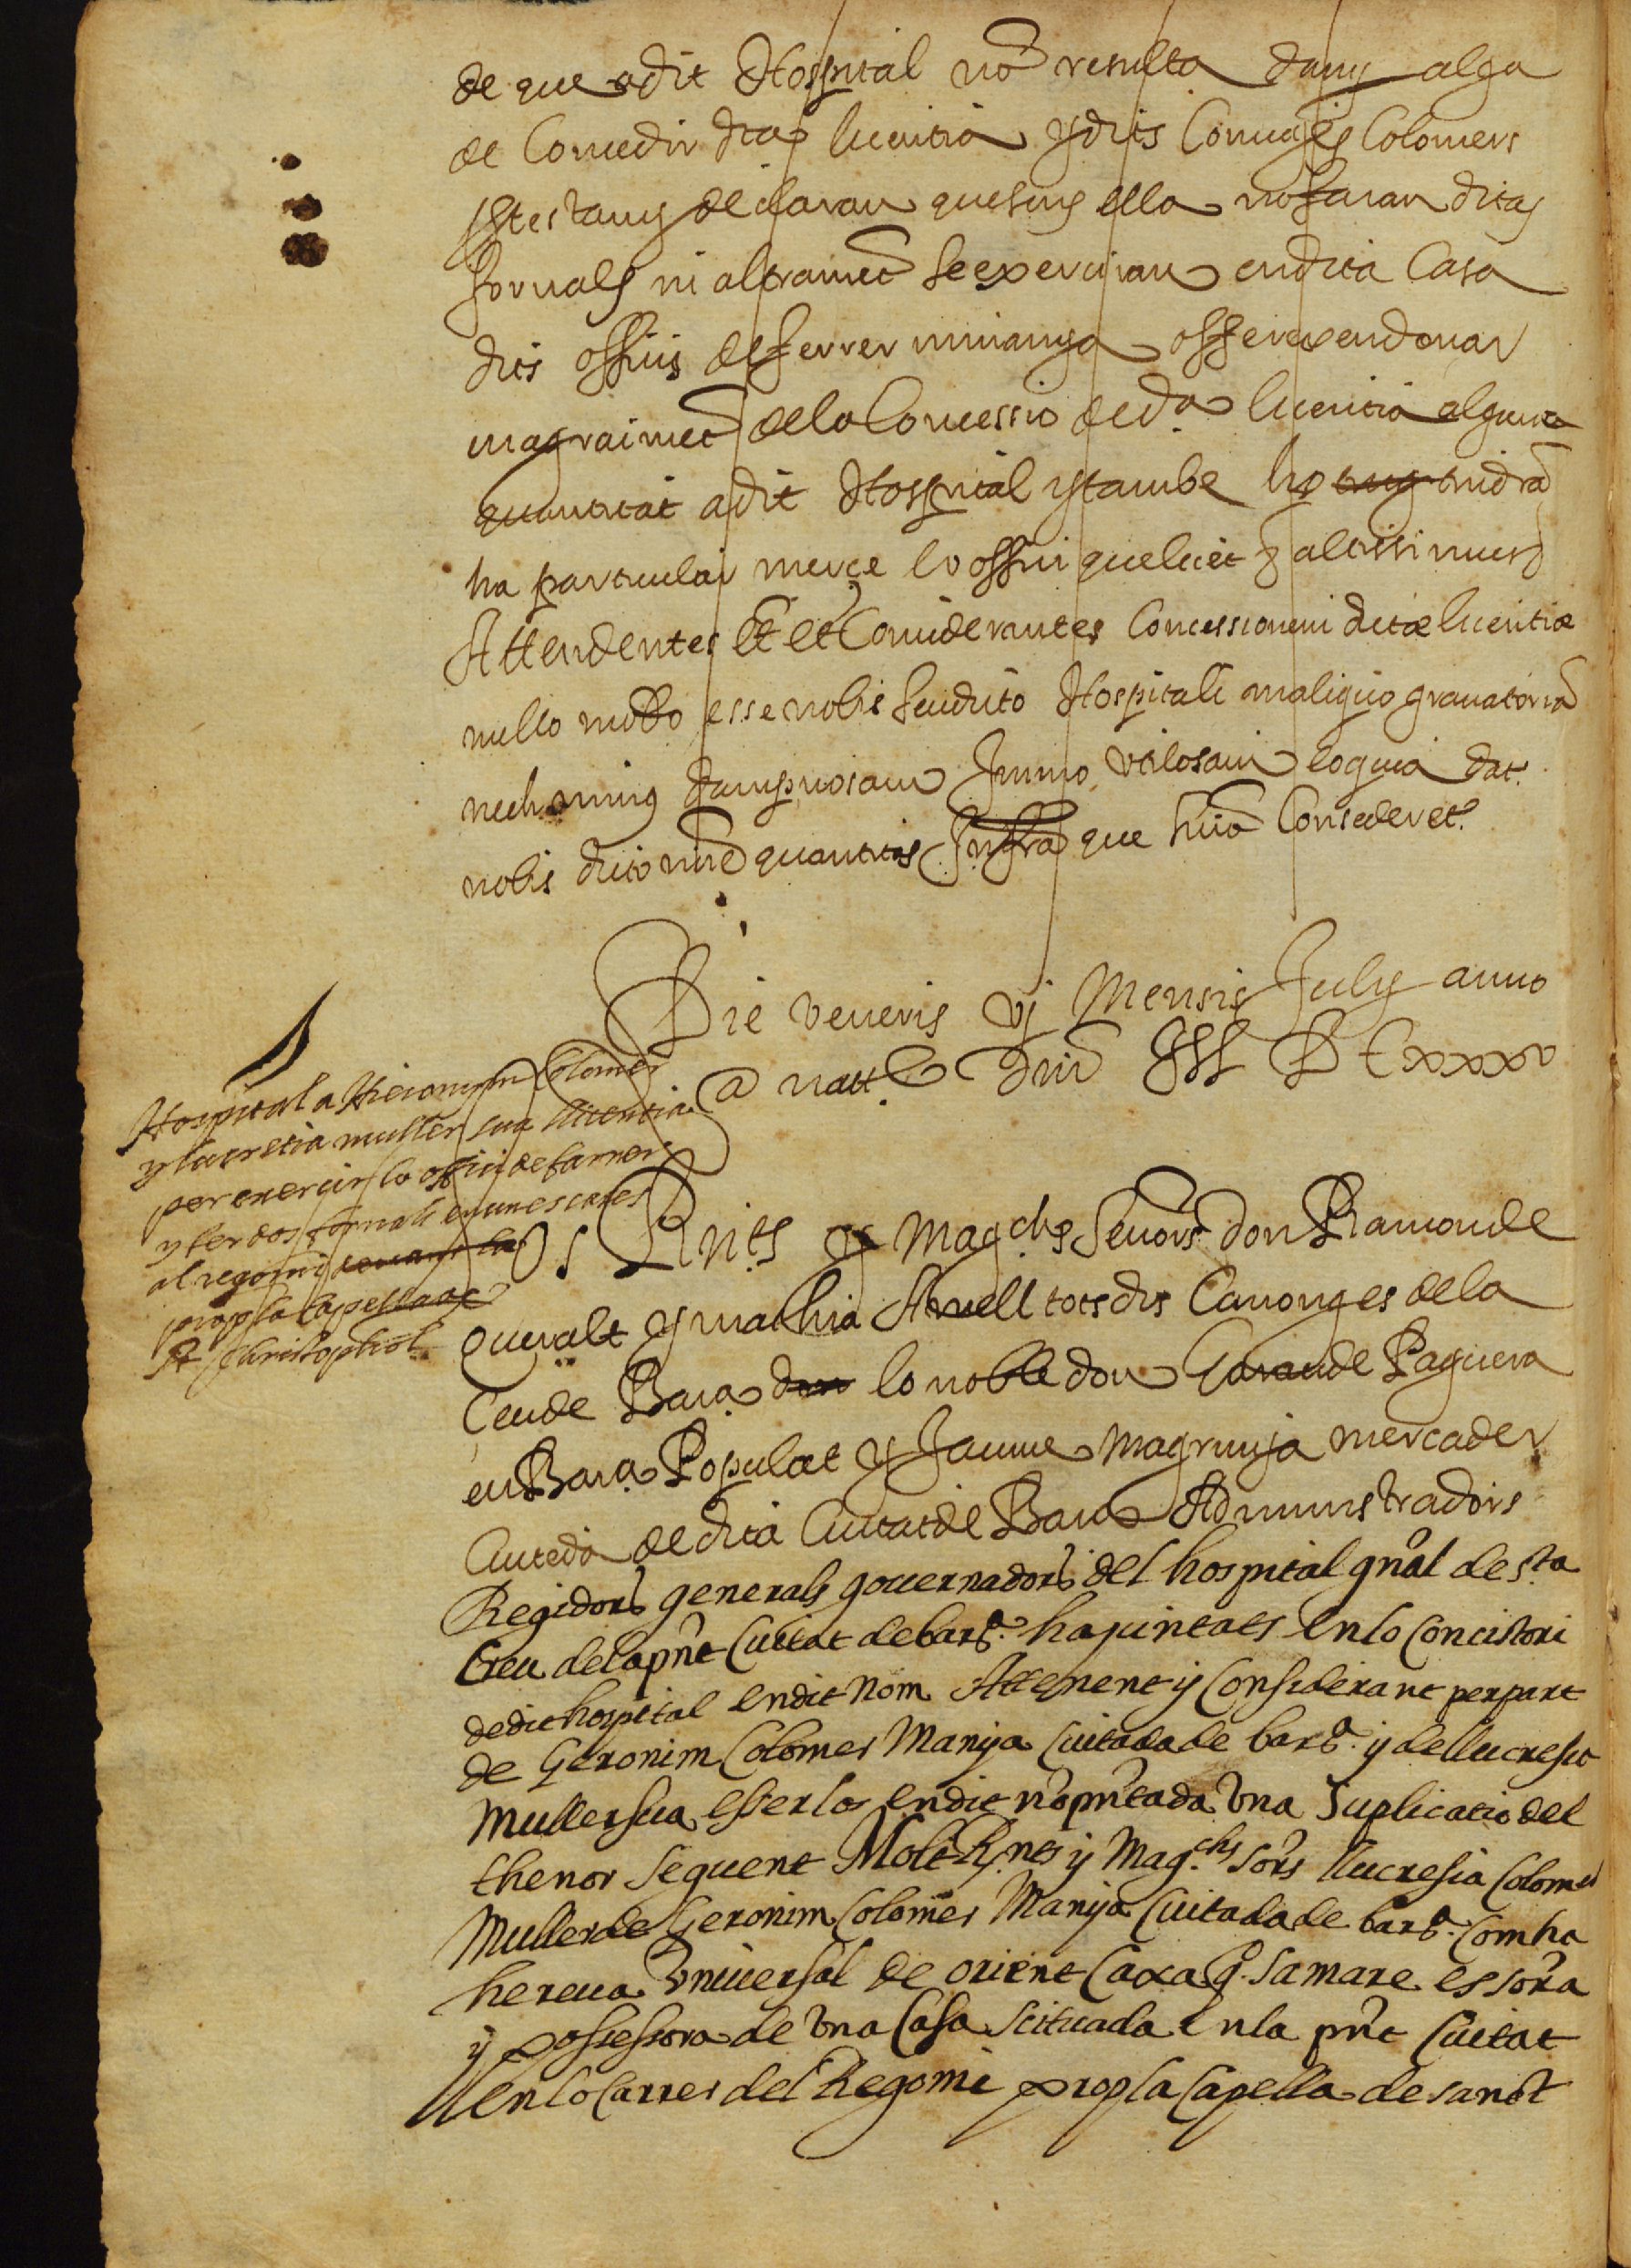 de que a dit Hospital no resulta dany alga
de Concedir dita licentia y dits Conuges Colomers
declaran que sens ella no faran ditas
fornals ni altrament se exerciran en dita Casa
dits officis de ferrer ni manya offerexen donar
en agraiment de la Concessio de da. licentia alguna
quantitat a dit Hospital y tambe ho tindra
ha particular merce lo offici que licet & altissimus
Attendentes Et et Considerantes Concessionem dictæ licentiæ
nullo modo esse nobis seu dicto Hospitali in aliquo gravatoriã
nech minus dampnosam Immo vtilosam eo quia dat.
nobis dicto nñe quantitas Infra que hñia Consideret.
Die veneris vj Mensis July anno
a natt.e Dñi MDCxxxv
Hospital a Hieronym Colomer
y lucretia muller sua llicentia
per exercir lo offici de farrer
y fer dos fornals en unes cases
al regomi devant la
prop la capella de
St Christophol
Los Rnts y Magchs Senors don Ramon de
Queralt y mathia Amell tots dis Canonges de la
Ceu de Bara don lo noble don Garau de Paguera
en Bara Populat y Jaume Magrinya mercader
Ciuteda de dita Ciutat de Bara Administradors
Regidors generals gouernadors del hospital gñal de sta
Creu de la pñt Ciutat de barã. hajuntats en lo Concistori
de dit hospital en dit nom Attenent y Considerant per part
de Geronim Colomer Manya Ciutada de barã. y de llucresia
Muller sua esser los en dit nõ pñtada vna Suplicatio del
thenor seguent Molt Rnts y Magchs sors llucresia Colomer
Muller de Geronim Colomer Manya Ciutada de barã. Com ha
hereua vniuersal de orient Caxa q. sa mare es sora
y possessora de vna Casa scituada en la pñt Ciutat
en lo Carrer del Regomi prop la Capella de sanct